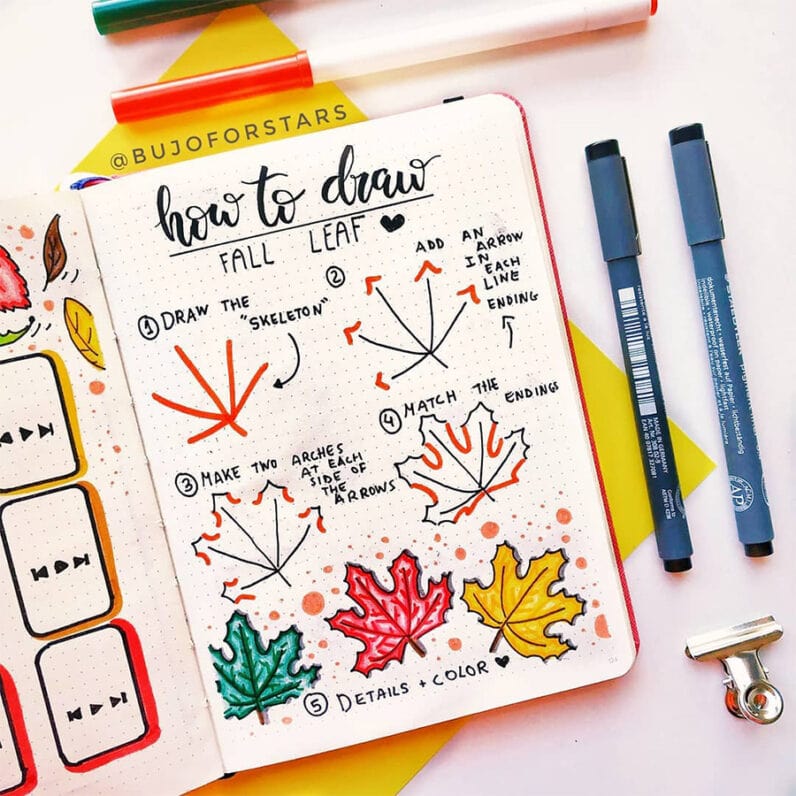 @BUJOFORSTARS
how to draw
FALL LEAF
① DRAW THE
"SKELETON"
②
ADD AN
ARROW
IN
EACH
LINE
ENDING
③ MAKE TWO ARCHES
AT EACH
SIDE OF
THE
ARROWS
④ MATCH THE ENDINGS
⑤ DETAILS + COLOR
MADE IN GERMANY
STAEDTLER PIGMENT
dokumentenecht